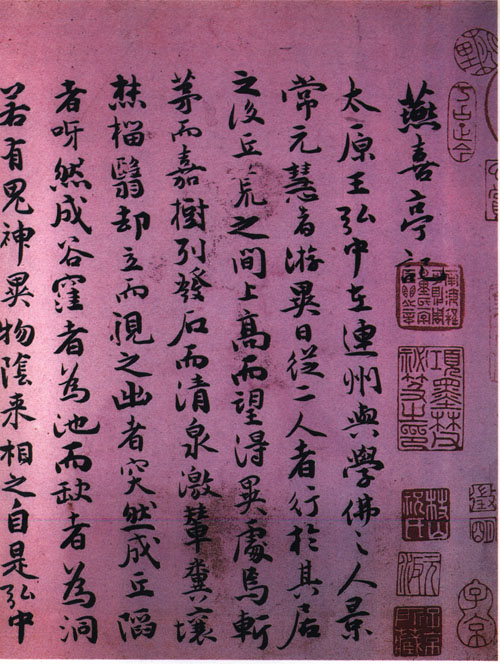 燕喜亭記
太原王弘中在連州與學佛之人景
常元慧者游異日從二人者行於其居
之後丘荒之間上高而望得異處焉斬
茅而嘉樹列發石而清泉激輦糞壤
焚椔翳却立而視之出者突然成丘陷
者呀然成谷窪者為池而缺者為洞
若有鬼神異物陰来相之自是弘中
項墨林祕笈之印
徵明
子京